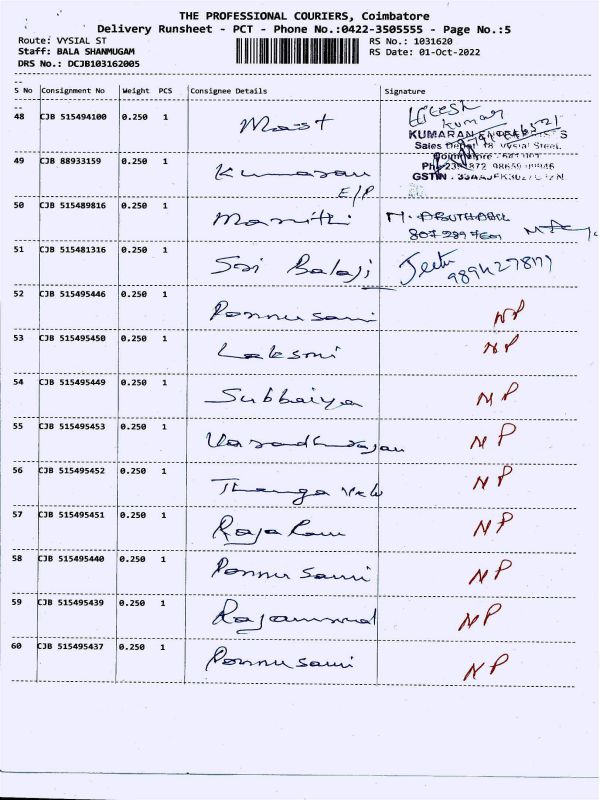 THE PROFESSIONAL COURIERS, Coimbatore
Delivery Runsheet - PCT - Phone No.:0422-3505555 - Page No.:5
Route: VYSIAL ST RS No.: 1031620
Staff: BALA SHANMUGAM RS Date: 01-Oct-2022
DRS No.: DCJB103162005
S No Consignment No Weight PCS Consignee Details Signature
48 CJB 515494100 0.250 1 Mast Hitesh Kumar
KUMARAN
Sales Depot 18 Vysial Street
49 CJB 88933159 0.250 1 Kumaran
E/P
GSTIN
50 CJB 515489816 0.250 1 M. ABUTHAHIR
51 CJB 515481316 0.250 1 Sri Balaji
52 CJB 515495446 0.250 1 Ponnusami NP
53 CJB 515495450 0.250 1 Laksmi NP
54 CJB 515495449 0.250 1 Subbaiya NP
55 CJB 515495453 0.250 1 Varadhurajan NP
56 CJB 515495452 0.250 1 Thanga Velu NP
57 CJB 515495451 0.250 1 Raja Ram NP
58 CJB 515495440 0.250 1 Ponnu Sami NP
59 CJB 515495439 0.250 1 Rajammal NP
60 CJB 515495437 0.250 1 Ponnu Sami NP